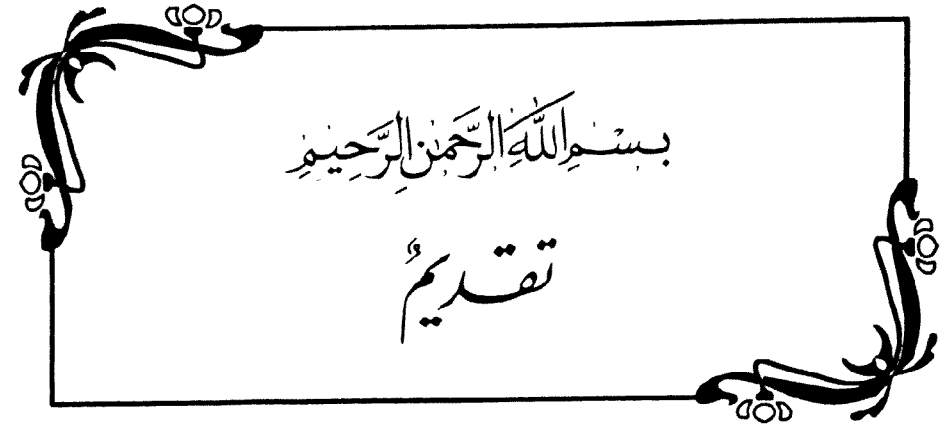 بِسْمِ اللَّهِ الرَّحْمَٰنِ الرَّحِيمِ
تقديمٌ